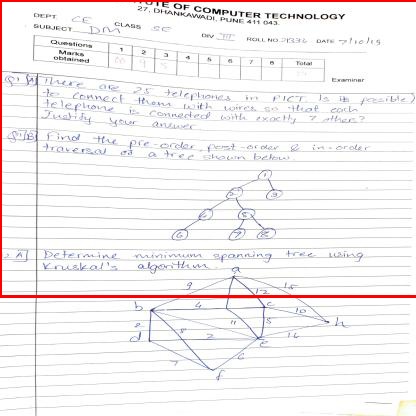 TUTE OF COMPUTER TECHNOLOGY
27, DHANKAWADI, PUNE 411 043.
DEPT. CE CLASS SE
SUBJECT DM DIV III ROLL NO. DATE 7/10/19
Questions 1 2 3 4 5 6 7 8 Total
Marks obtained
Examiner
Q1 A] There are 25 telephones in PICT. Is it possible
to connect them with wires so that each
telephone is connected with exactly 7 others?
Justify your answer
Q1 B] Find the pre-order, post-order & in-order
traversal of a tree shown below.
1
2 3
4 5
6 7 8
A] Determine minimum spanning tree using
Kruskal's algorithm.
a
9 12 15
b 4 c 10
h
2 8 11 5
d 2 e 14
7 6
f